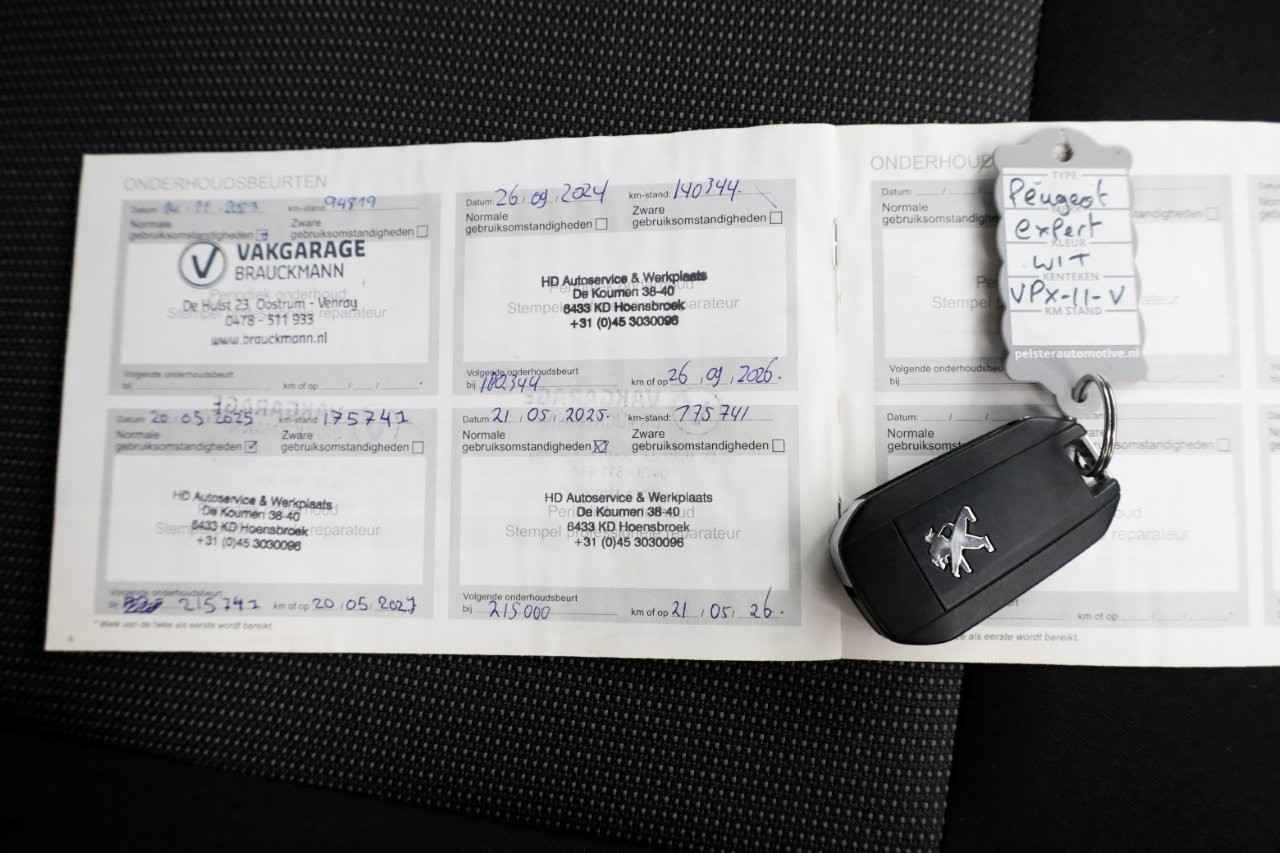 ONDERHOUDSBEURTEN
Datum: km-stand: 94819
Normale gebruiksomstandigheden Zware gebruiksomstandigheden
VAKGARAGE
BRAUCKMANN
De Hulst 23 Oostrum - Venray
0478 - 511 933
www.brauckmann.nl
Volgende onderhoudsbeurt
bij km of op / /
Datum: 26.09.2024 km-stand: 140344
Normale gebruiksomstandigheden Zware gebruiksomstandigheden
HD Autoservice & Werkplaats
De Koumen 38-40
6433 KD Hoensbroek
+31 (0)45 3030096
Volgende onderhoudsbeurt
bij km of op 26.09.2026.
Datum: 20.05.2025 km-stand: 175741
Normale gebruiksomstandigheden Zware gebruiksomstandigheden
HD Autoservice & Werkplaats
De Koumen 38-40
6433 KD Hoensbroek
+31 (0)45 3030096
Volgende onderhoudsbeurt
bij 215741 km of op 20.05.2027
Datum: 21.05.2025. km-stand: 175741
Normale gebruiksomstandigheden Zware gebruiksomstandigheden
HD Autoservice & Werkplaats
De Koumen 38-40
6433 KD Hoensbroek
+31 (0)45 3030096
Stempel professionele reparateur
Volgende onderhoudsbeurt
bij 215000 km of op 21.05.26.
* Welk van de twee als eerste wordt bereikt.
ONDERHOUD
Datum: /
Normale
gebruik
omstandigheden
Stempel
reparateur
Volgende onderhoud
bij
Datum: / /
Normale
gebruiksomstandigheden
km of op
als eerste wordt bereikt.
TYPE
Peugeot
expert
KLEUR
WIT
KENTEKEN
VPX-11-V
KM STAND
pelsterautomotive.nl